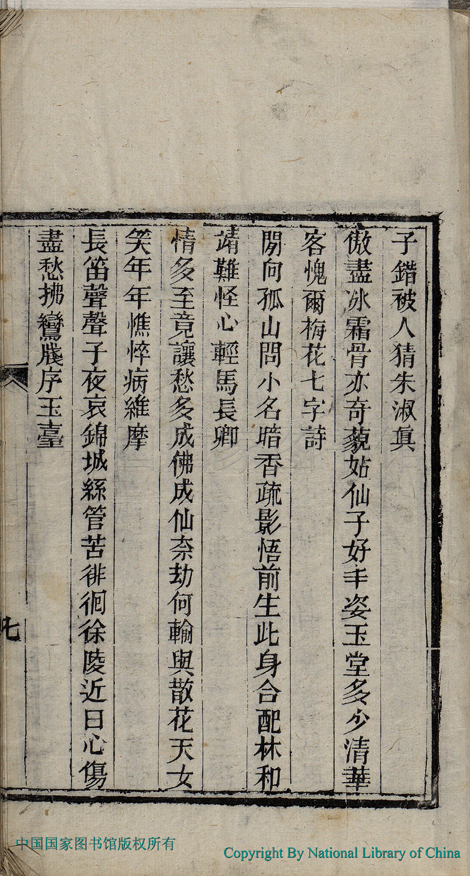 子錯被人猜朱淑真
傲盡冰霜骨亦奇藐姑仙子好丰姿玉堂多少清華
客愧爾梅花七字詩
閒向孤山問小名暗香疏影悟前生此身合配林和
靖難怪心輕馬長卿
情多至竟讓愁多成佛成仙奈劫何輸與散花天女
笑年年憔悴病維摩
長笛聲聲子夜哀錦城絲管苦徘徊徐陵近日心傷
盡愁拂鸞牋序玉臺
七
中国国家图书馆版权所有
Copyright By National Library of China